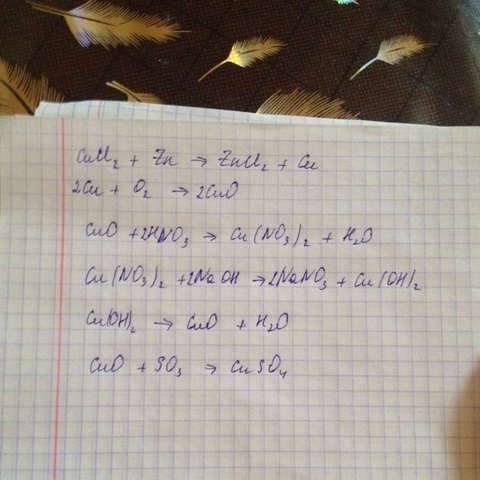 CuCl₂ + Zn → ZnCl₂ + Cu
2Cu + O₂ → 2CuO
CuO + 2HNO₃ → Cu(NO₃)₂ + H₂O
Cu(NO₃)₂ + 2NaOH → 2NaNO₃ + Cu(OH)₂
Cu(OH)₂ → CuO + H₂O
CuO + SO₃ → CuSO₄